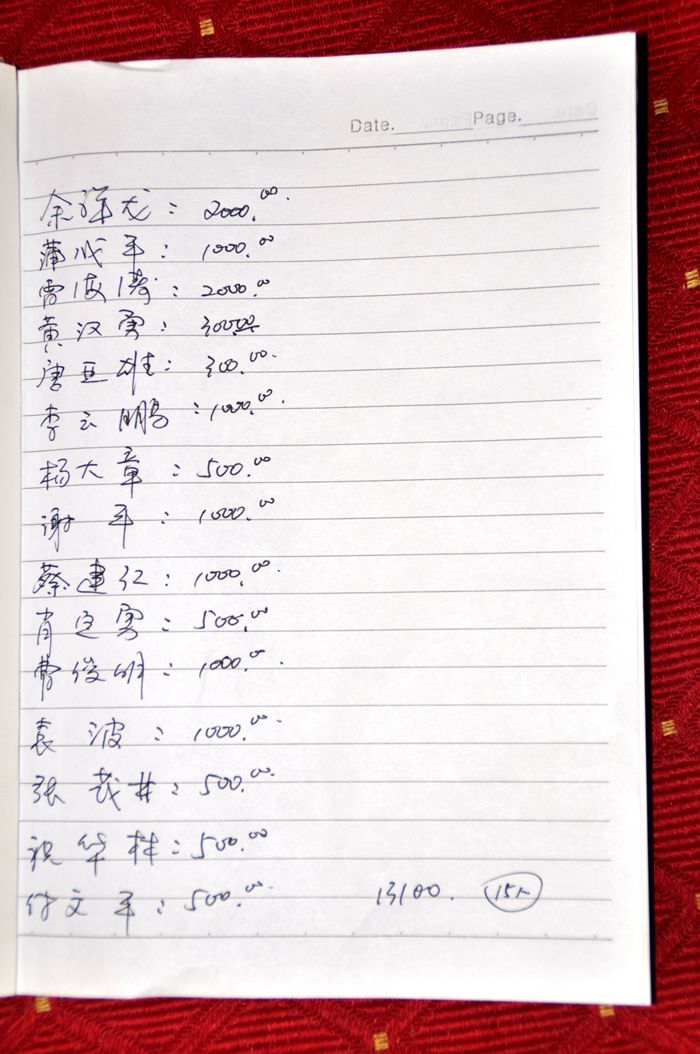 Date. Page.
余祥龙：2000.00
蒲成平：1000.00
雷海涛：2000.00
黄汉勇：300.00
唐亚雄：300.00
李云鹏：1000.00
杨大章：500.00
谢平：1000.00
蔡建红：1000.00
肖定勇：500.00
曹俊明：1000.00
袁波：1000.00
张：500.00
祝华林：500.00
付文平：500.00 13100. 15人